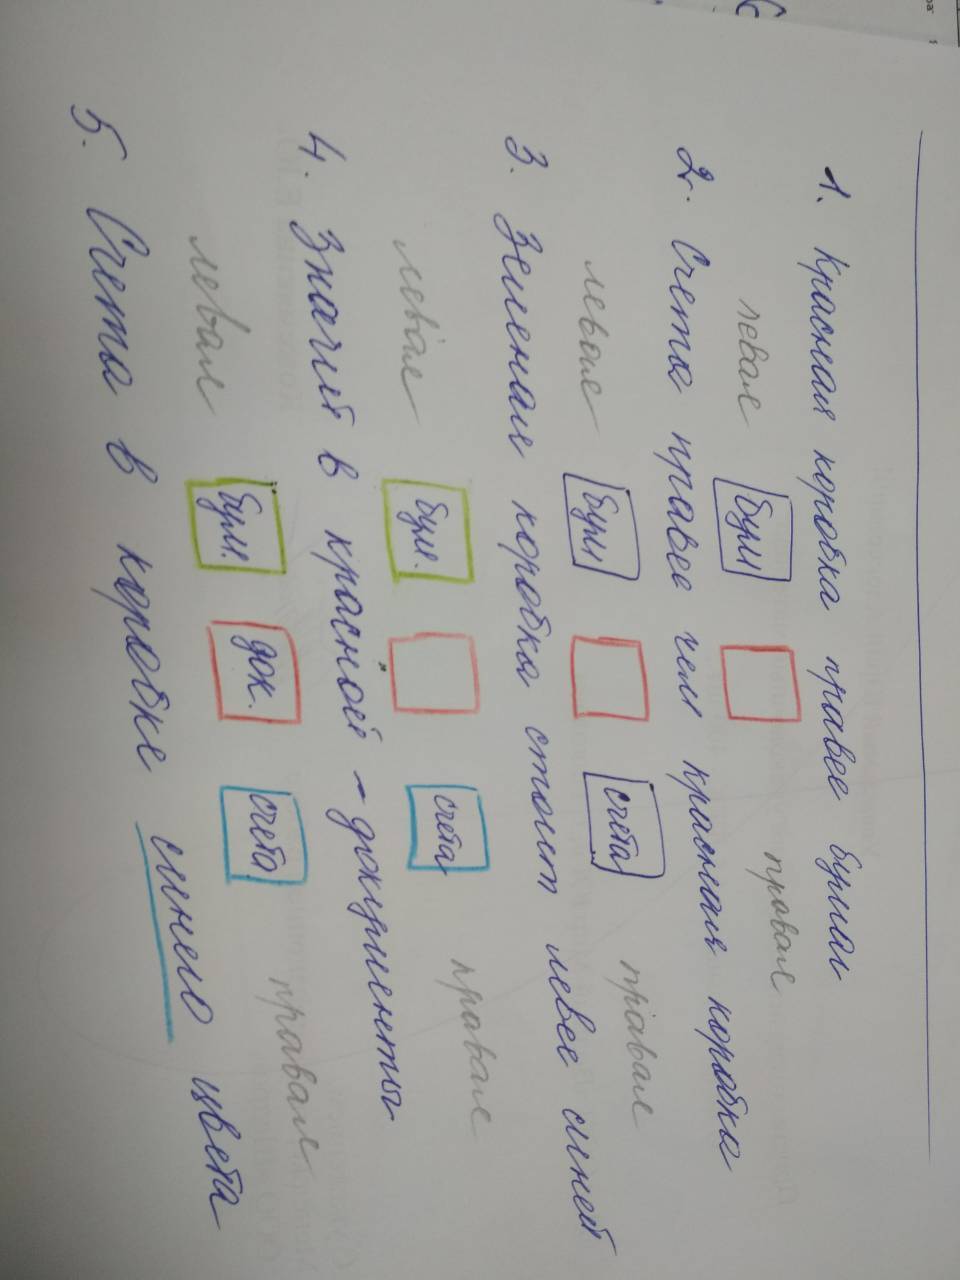 1. Красная коробка правее бумаг
левее бум правее
2. Счета правее чем красная коробка
левее бум счета правее
3. Зеленая коробка стоит левее синей
левее бум. счета правее
4. Значит в красной - документы
левее бум. док. счета правее
5. Счета в коробке синего цвета